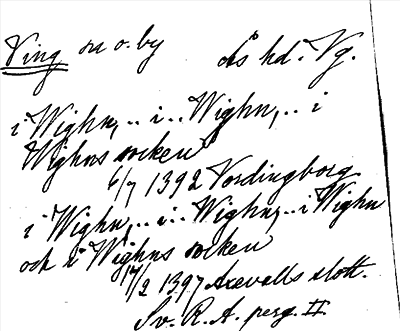 Ving sn o. by Ås hd. Vg.
i Wighn, .. i .. Wighn, .. i
Wighns socken
6/7 1392 Vordingborg
i Wighn, .. i .. Wighn, .. i Wighn
och i Wighns socken
17/2 1397 Axevalls slott.
Sv. R. A. perg. II